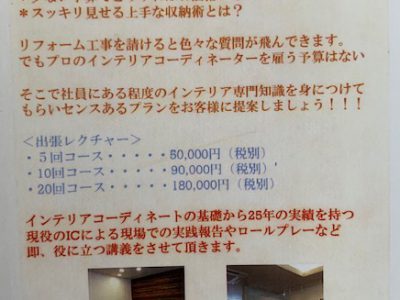 *スッキリ見せる上手な収納術とは？
リフォーム工事を請けると色々な質問が飛んできます。
でもプロのインテリアコーディネーターを雇う予算はない
そこで社員にある程度のインテリア専門知識を身につけて
もらいセンスあるプランをお客様に提案しましょう！！！
＜出張レクチャー＞
・５回コース・・・・・50,000円（税別）
・10回コース・・・・・90,000円（税別）
・20回コース・・・・・180,000円（税別）
インテリアコーディネートの基礎から25年の実績を持つ
現役のICによる現場での実践報告やロールプレーなど
即、役に立つ講義をさせて頂きます。